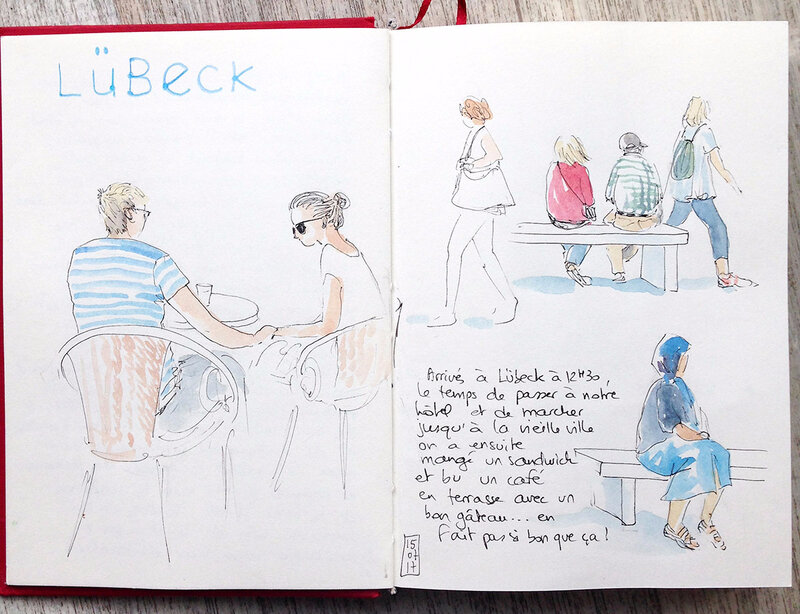 LüBecK
Arrivés à Lübeck à 12H30,
le temps de passer à notre
hôtel et de marcher
jusqu'à la vieille ville
on a ensuite
mangé un sandwich
et bu un café
en terrasse avec un
bon gâteau... en
fait pas si bon que ça !
15
07
17